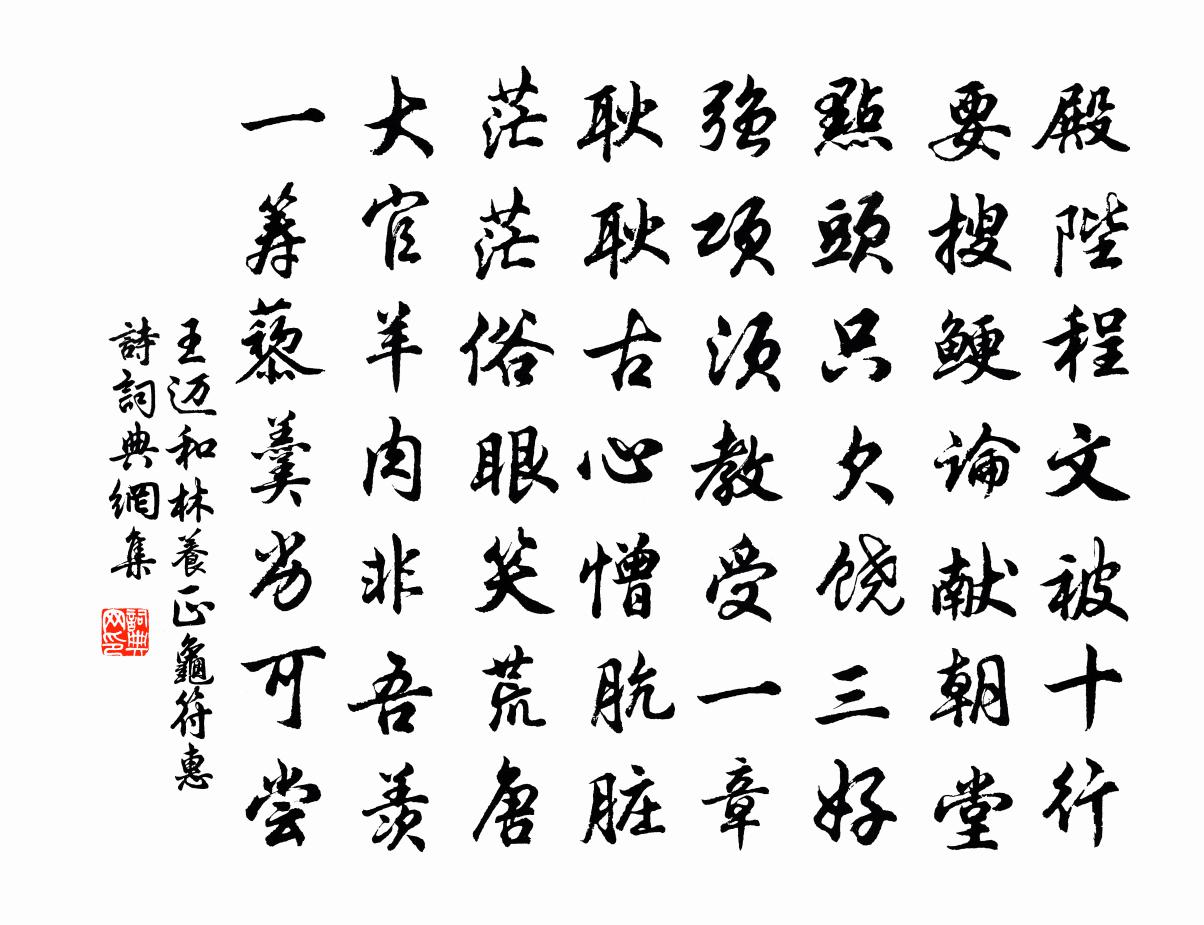 殿陛程文被十行
要搜鲠論献朝堂
點頭只欠饶三好
強项须教受一章
耿耿古心憎肮脏
茫茫俗眼笑荒唐
大官羊肉非吾羡
一筹藜羹劣可尝
王迈和林養正龜符惠
詩詞典網集
詞典网印